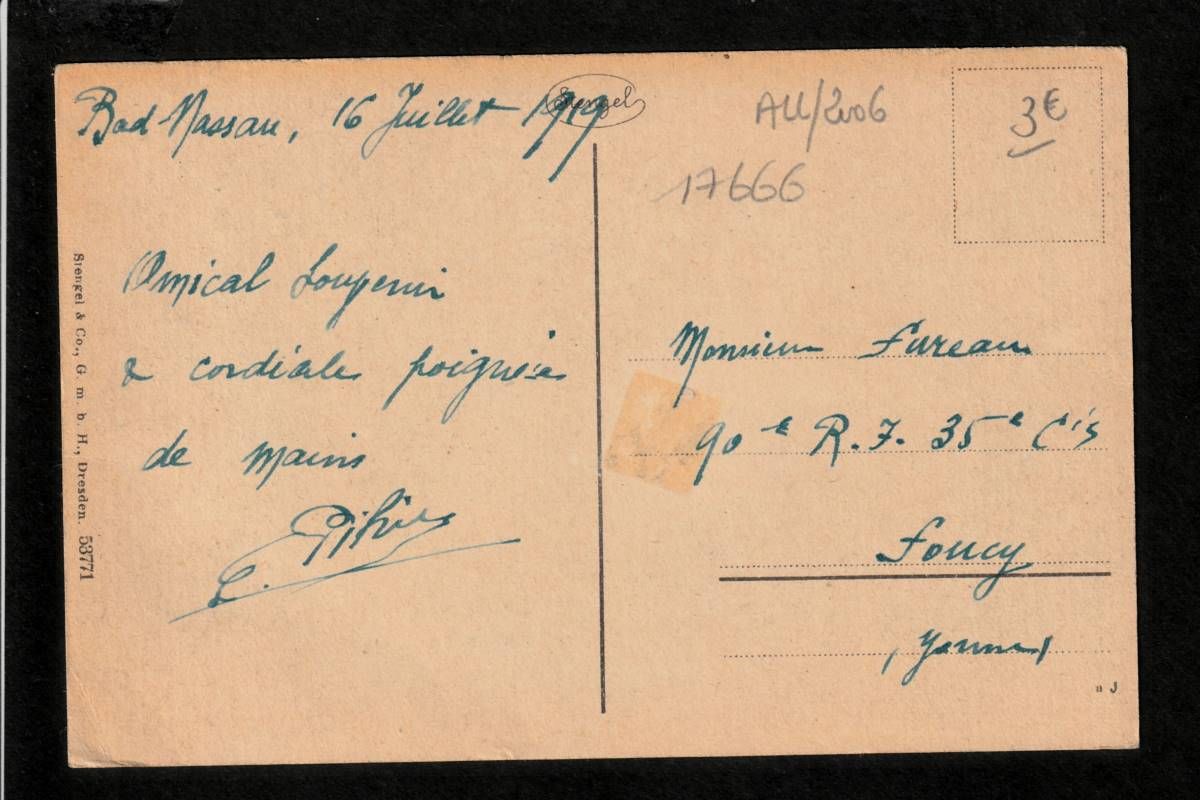 Bad Nassau, 16 Juillet 1919
Stengel
ALL/2006
3€
17666
Amical Souvenir
& cordiales poignées
de mains
L.
Monsieur Fureau
90e R.I. 35e Cie
Joucy
(Yonne)
Stengel & Co., G. m. b. H., Dresden. 53771
n J